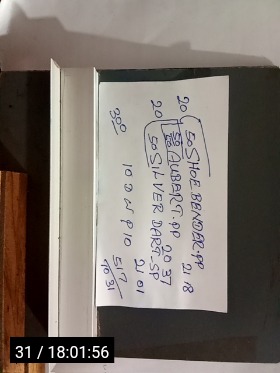 20 50 SHOE.BENDER.PP 21 18
50 AUBART.PP 20 37
20 50 SILVER DART.SP 21 01
300 10 D N P 10 517
31 / 18:01:56